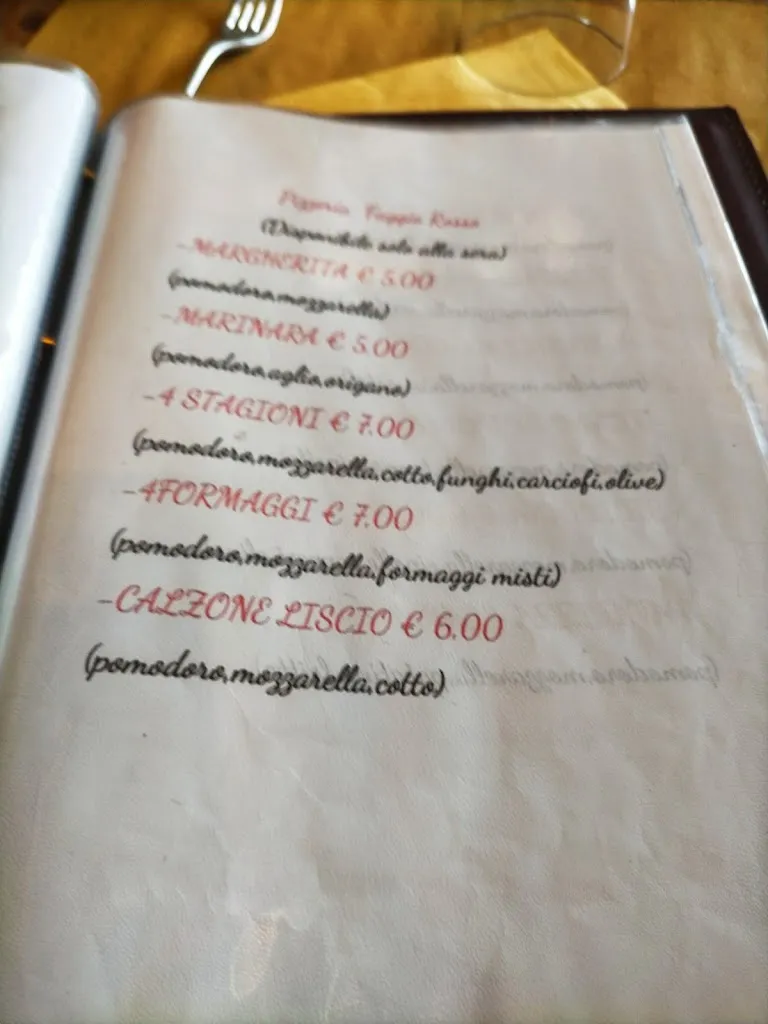 Pizzeria Faggio Rosso
(Disponibile solo alla sera)
-MARGHERITA € 5.00
(pomodoro,mozzarella)
-MARINARA € 5.00
(pomodoro,aglio,origano)
-4 STAGIONI € 7.00
(pomodoro,mozzarella,cotto,funghi,carciofi,olive)
-4FORMAGGI € 7.00
(pomodoro,mozzarella,formaggi misti)
-CALZONE LISCIO € 6.00
(pomodoro,mozzarella,cotto)